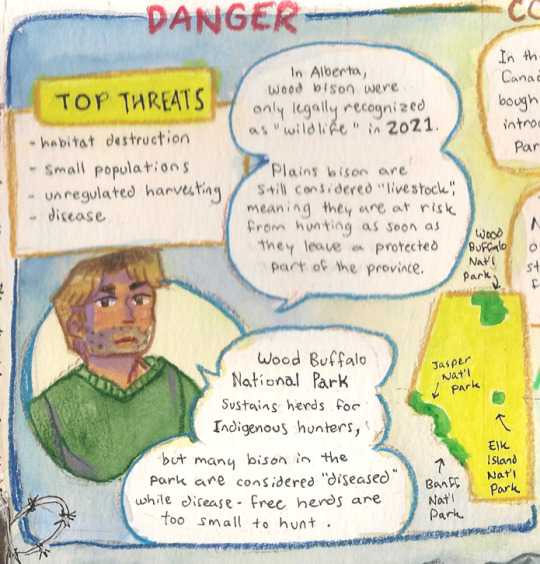 DANGER
CO
TOP THREATS
- habitat destruction
- small populations
- unregulated harvesting
- disease
In Alberta,
wood bison were
only legally recognized
as "wildlife" in 2021.
Plains bison are
still considered "livestock",
meaning they are at risk
from hunting as soon as
they leave a protected
part of the province.
Wood Buffalo
National Park
sustains herds for
Indigenous hunters,
but many bison in the
park are considered "diseased"
while disease-free herds are
too small to hunt.
In th
Canad
bough
intro
Par
Wood
Buffalo
Nat'l
Park
Jasper
Nat'l
Park
Elk
Island
Nat'l
Park
Banff
Nat'l
Park